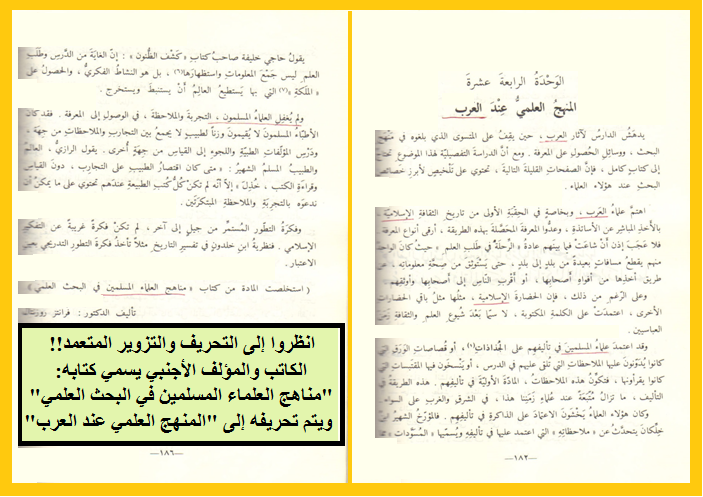 الوَحْدَةُ الرابعة عشرة
المنهجُ العلميُّ عِنْدَ العرب
يدهَشُ الدارسُ لآثار العرب ، حين يقِفُ على المستوى الذي بلغوه في مَنْهج
البحث ، ووسائل الحُصولِ على المعرفة . ومع أنَّ الدراسةَ التفصيليَّةَ لهذا الموضوعِ تحتاجُ
إلى كتابٍ كاملٍ ، فإنَّ الصفحاتِ القليلةَ التاليةَ ، تحتوي على تَلْخيصٍ لأبرزِ خصائص
البحث عند هؤلاء العلماء .
اهتمَّ علماءُ العَرَب ، وبخاصةٍ في الحِقْبَةِ الأولى من تاريخ الثقافة الإسلامية ،
بالأخذِ المباشرِ عن الأساتذةِ ، وعدُّوا المعرفةَ المحصَّلةَ بهذه الطريقة ، أرقى أنواع المعرفة
فلا عَجَبَ إذن أنْ شاعَتْ فيما بينَهم عادةُ « الرِّحْلة في طلب العلم » حيثُ كان الواحدُ
منهم يقطعُ مسافاتٍ بعيدةً من بلدٍ إلى بلدٍ ، حتى يَسْتَوْثِقَ من صِحَّةِ معلوماتِه ، عن
طريقِ أخذِها من أفواهِ أصحابِها ، أو أقْرَبِ النَّاسِ إلى أصحابِها وأوثقِهم .
وعلى الرَّغم من ذلك ، فإن الحضارةَ الإسلامية ، مثلُها مثلُ باقي الحضارات
الأخرى ، اعتمدَتْ على الكلمةِ المكتوبةِ ، لا سيَّما بَعْدَ شُيوعِ العلم والثقافة زمن
العباسيين .
وقد اعتمدَ علماءُ المسلمين في تآليفِهم على الجُذاذات(١) ، أو قُصاصاتِ الوَرَقِ التي
كانوا يُدَوِّنونَ عليها الملاحظاتِ التي تُلْقى عليهم في الدرس ، أو يَنْسَخونَ فيها المقتبَساتِ التي
كانوا يقرأونَها ، فتكوِّنُ هذه الملاحظاتُ ، المادةَ الأوليَّةَ في تأليفِهم . هذه الطريقة في
التأليف ، ما تزالُ مُتَّبَعَةً عند علماءِ زَمَنِنا هذا ، في الشرق والغرب على السواء .
وكان هؤلاء العلماءُ يَخْشَوْنَ الاعتمادَ على الذاكرةِ في تأليفِهم . فالمؤرِّخُ الشهيرُ ابنُ
خِلّكان يتحدثُ عن « ملاحظاتِه » التي اعتمد عليها في تأليفِه ويُسمّيها « المُسَوَّدات »
—١٨٢—
يقولُ حاجي خليفة صاحبُ كتاب « كَشْف الظُّنون » : إنّ الغايةَ من الدَّرسِ وطَلَبِ
العلم ليس جَمْعَ المعلوماتِ واستظهارَها(٦) ، بل هو النشاطُ الفكريُّ ، والحصولُ على
« المَلَكةِ »(٧) التي بها يَستطيعُ العالِمُ أنْ يستنبطَ ويستخرج .
ولم يُغْفِلِ العلماءُ المسلمون ، التجربةَ والملاحظةَ ، في الوصولِ إلى المعرفة . فقد كان
الأطِبَّاءُ المسلمونَ لا يُقيمونَ وزناً لطبيبٍ لا يجمعُ بينَ التجاربِ والملاحظاتِ من جِهَةٍ ،
ودَرْسِ المؤلّفاتِ الطبيَّةِ واللجوءِ إلى القياسِ من جِهَةٍ أخرى . يقولُ الرازيُّ ، العالمُ
والطبيبُ المسلمُ الشهيرُ : « متى كان اقتصارُ الطبيبِ على التجاربِ ، دونَ القياسِ
وقراءةِ الكتبِ ، خُذِلَ » إلّا أنّه لم تكنْ كُلُّ كُتبِ الطبيعةِ عندَهم تحتوي على ما يمكنُ أن
ندعوَه بالتجربةِ والملاحظةِ المبتكرَتَين .
وفكرةُ التطور المُستمِرّ من جيلٍ إلى آخر ، لم تكنْ فكرةً غريبةً عن التفكير
الإسلامي . فنظريةُ ابنِ خلدون في تفسيرِ التاريخ مثلاً تأخذُ فكرةَ التطورِ التدريجي بعين
الاعتبار .
( استخلصت المادة من كتاب « مناهج العلماء المسلمين في البحث العلمي »
تأليف الدكتور : فرانتز روزنتال
انظروا إلى التحريف والتزوير المتعمد!!
الكاتب والمؤلف الأجنبي يسمي كتابه:
"مناهج العلماء المسلمين في البحث العلمي"
ويتم تحريفه إلى "المنهج العلمي عند العرب"
—١٨٦—